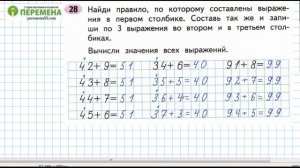 ПЕРЕМЕНА
28 Найди правило, по которому составлены выраже-
ния в первом столбике. Составь так же и запи-
ши по 3 выражения во втором и в третьем стол-
биках.
Вычисли значения всех выражений.
42+9=51 34+6=40 91+8=99
43+8=51 35+5=40 92+7=99
44+7=51 36+4=40 93+6=99
45+6=51 37+3=40